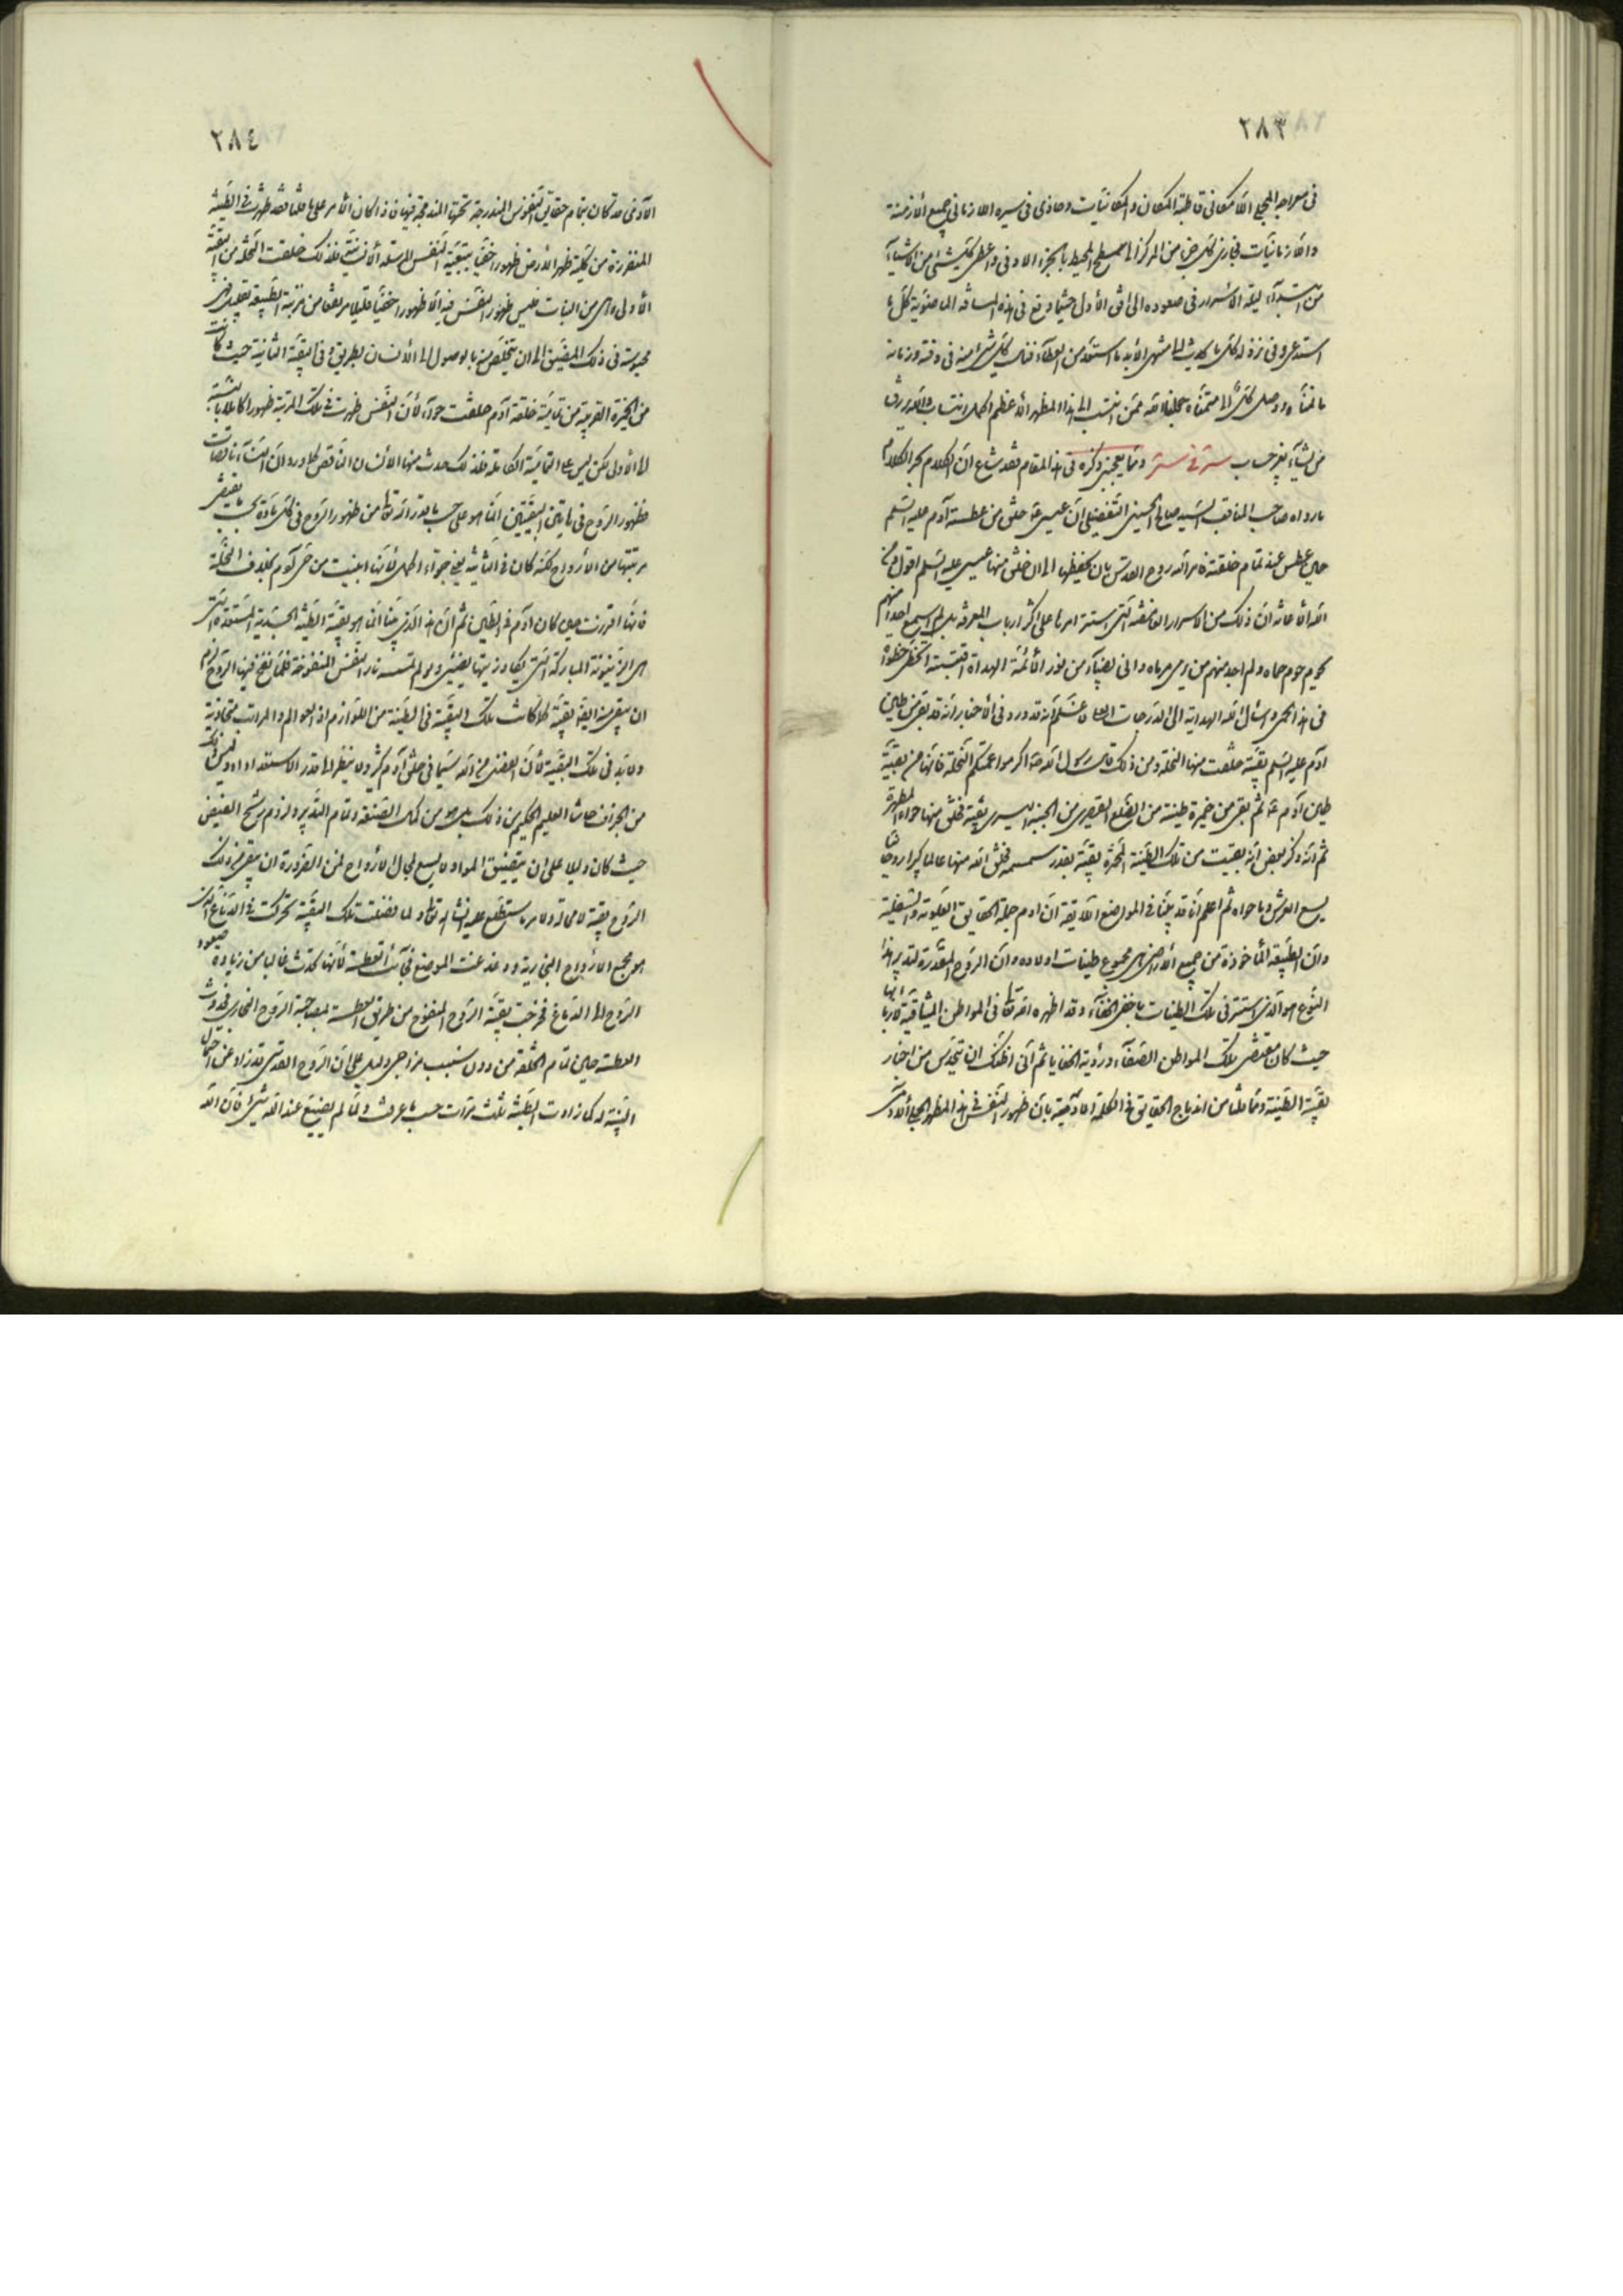 ٢٨٣
في معراجه الجمعي اللامكاني قاطبة المكان والمكانيات وحاذى في سيره اللازماني جميع الأزمنة
والزمانيات فحاذى كل جزء من المركز الى سطح المحيط بالجزء الاوفى واعطى كل شئ من الاشياء
من ابتداء ليلة الاسراء في صعوده الى افق الأولى حيثما وقع في هذه المسافة المعنوية كل ما
استدعى وفي نزوله كل ما يحدث الى منتهى الأبد ما استعد من العطاء فنال كل شئ منه في وقته وزمانه
ما تمناه ووصل كل الى متمناه بخلافته ممن انتسب الى هذا المظهر الأعظم اكمل انتساب والله يرزق
من يشاء بغير حساب سر في سر ومما يعجبني ذكره في هذا المقام فقد شاع ان الكلام يجر الكلام
ما رواه صاحب المناقب السيد صالح الحسيني التفضيلي ان عيسى خلق من عطسة آدم عليه السلم
حين عطس عند تمام خلقته فامر الله روح القدس بان يحفظها الى ان خلق منها عيسى عليه السلم اقول
الله ان ذلك من الاسرار الغامضة التي استتر امرها على اكثر ارباب المعرفة بل لم اسمع احدا منهم
يحوم حوم حماه ولم اجد منهم من رمى مرماه واني بضياء من نور الأئمة الهداة اقتبسته اتخطى خطوات
في هذا الحمى واسأل الله الهداية الى الدرجات العلا فاعلم انه قد ورد في الأخبار انه قد بقى من طين
آدم عليه السلم بقية خلقت منها النخلة ومن ذلك قال رسول الله اكرموا عمتكم النخلة فانها من بقية
طين آدم ثم بقى من خميرة طينته من الضلع القصرى من الجنبة اليسرى بقية فخلق منها حواء المطهرة
ثم انه ذكر بعض انه بقيت من تلك الطينة المخمرة بقية بقدر سمسمة فخلق الله منها عالما كبيرا روحانيا
يسع العرش وما حواه ثم اعلم انا قد بينا في المواضع اللايقة ان آدم جملة الحقايق العلوية والسفلية
وان الطينة المأخوذة من جميع الأراضي هي مجموع طينات اولاده وان الروح المقدرة لتدبير هذا
النوع هو الذي استتر في تلك الطينات باخفى الخفاء وقد اظهره الله تعالى في المواطن الميثاقية
حيث كان مقتضى تلك المواطن الصفاء ورؤية الخفايا ثم انى اظنك ان تتحدس من اخبار
بقية الطينة ومما قلنا من اندماج الحقايق في الكلمة الآدمية بان ظهور النفس في هذا المظهر الجمعي
٢٨٤
الآدمي قد كان بتمام حقايق النفوس المندرجة تحتها المندمجة فيها فاذا كان الأمر على ما قلنا فقد ظهرت في الطينة
المتفرزة من كلية ظهر الأرض ظهورا خفيا بتبعية النفس المرسلة الأنسية فلذلك خلقت النخلة من البقية
الأولى وهي من النبات فليس ظهور النفس فيه الا ظهورا خفيا قليلا مرتفعا من مرتبة الطبيعة بقليل فهي
محبوسة في ذلك المضيق الى ان يتخلص منه بالوصول الى الأنسان بطريق وفي البقية الثانية حيث كانت
من الخميرة القريبة من تمامية خلقة آدم خلقت حواء لأن النفس ظهرت في تلك المرتبة ظهورا كاملا بالنسبة
الى الأولى لكن ليس على التمامية الكاملة فلذلك حدث منها الأنسان الناقص كما ورد ان النساء ناقصات
فظهور الروح في هاتين البقيتين انما هو على حسب ما قدر الله تعالى من ظهور الروح في كل مادة بحسب ما يقتضى
مرتبتها من الأرواح لكنه كان في الثانية يعنى حواء اكمل لأنها انبنيت من حي آدم بخلاف النخلة
فانها افرزت حين كان آدم في الطين ثم ان هذا الذي بينا انما هو بقية الطينة الجسدية المستعدة التي
هي الزيتونة المباركة التي يكاد زيتها يضئ ولو لم تمسسه نار النفس المنفوخة فلما نفخ فيها الروح لزم
ان يبقى منه ايضا بقية كما كانت تلك البقية في الطينة من اللوازم اذ العوالم والمراتب متحاذية
ولابد في تلك البقية لأن الفضل من الله سيما في خلق آدم كثير ولا ينظر الى قدر الاستعداد اذ وليس ذلك
من الجزاف حاشا العليم الحكيم من ذلك بل هو من كمال الصنعة وتمام التدبير ولزوم رشح الفيض
حيث كان دليلا على ان بتضيق المواد لا يسع لمجال الأرواح فمن الضرورة ان يبقى من ذلك
الروح بقية لا محالة ولا مر ما يستطلع عليه انشاء الله تعالى ولما فضلت تلك البقية تحركت في الدماغ الذي
هو مجمع الأرواح البخارية ودغدغت الموضع فجاءت العطسة لأنها تحدث غالبا من زيادة صعود
الروح الى الدماغ فخرجت بقية الروح المنفوخ من طريق العطسة بمصاحبة الروح البخارى فحدوث
العطسة حين تمام الخلقة من دون سبب مزاجي دليل على ان الروح القدسي قد زاد عن احتمال
البنية له كما زادت الطينة ثلث مرات حسب ما عرفت ولما لم يضيع عند الله شئ فان الله